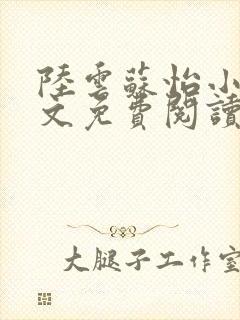 陸雲蘇怡小
文免費閱讀
大腿子工作室